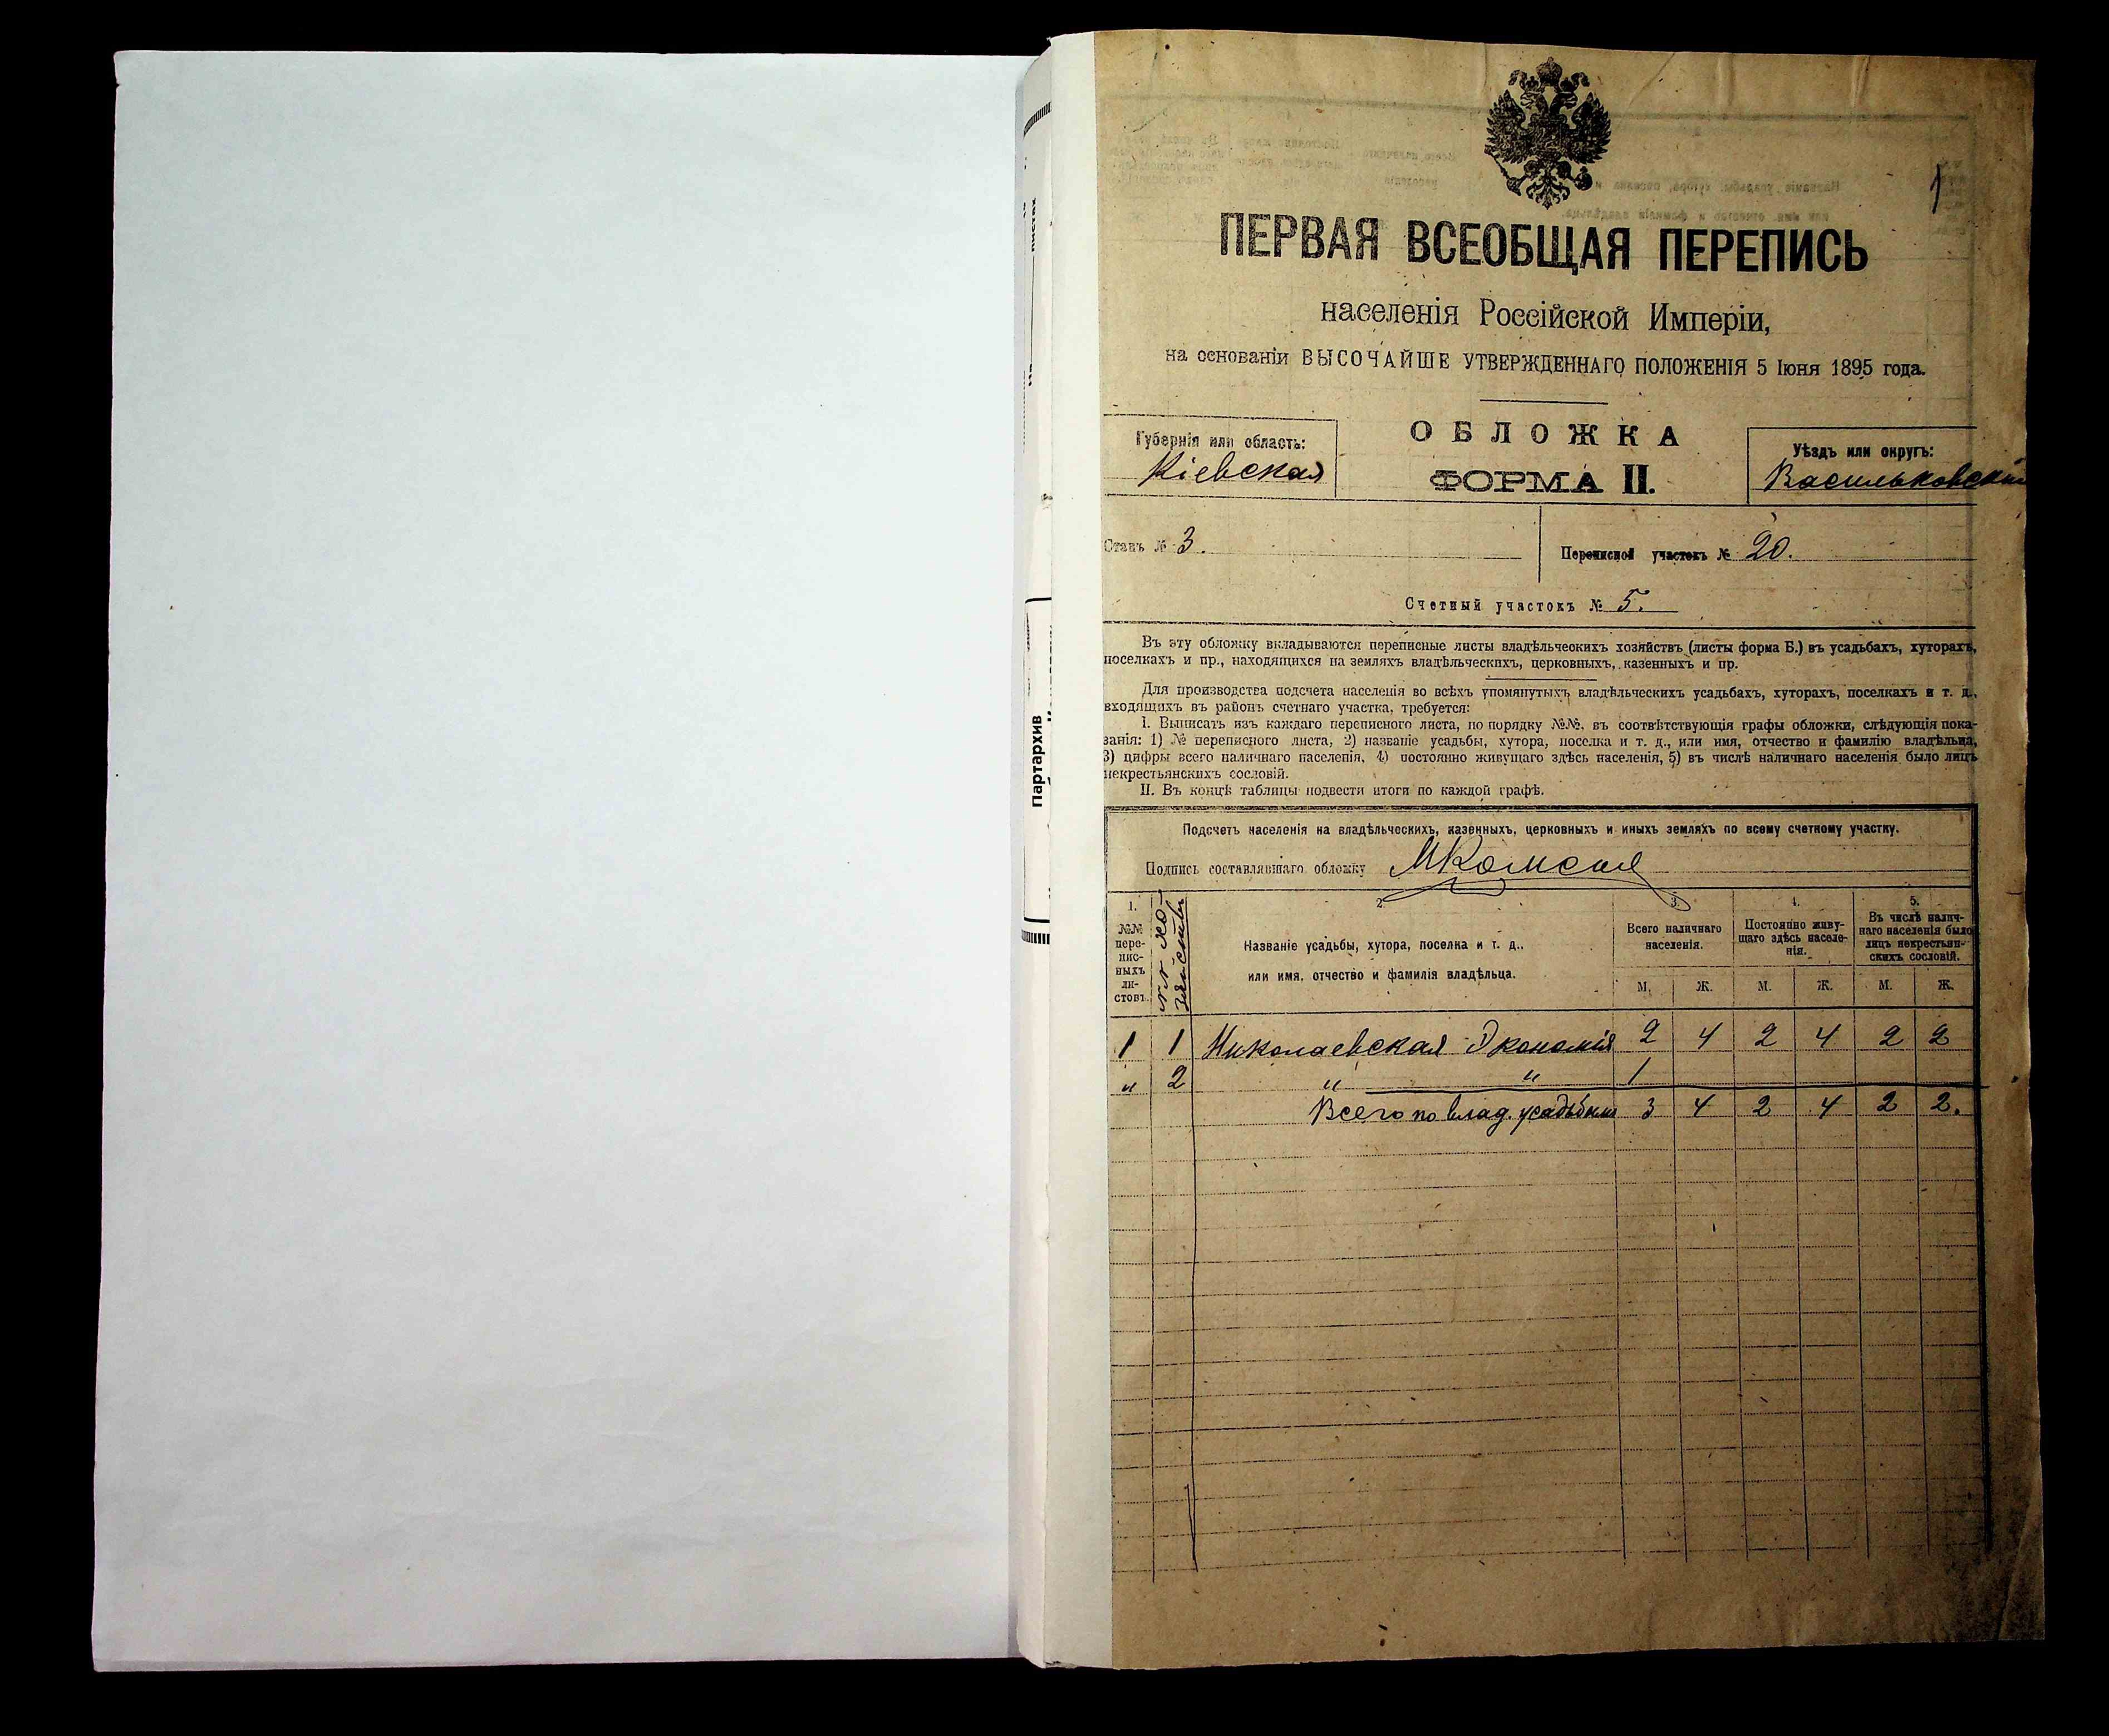 Партархив
1
ПЕРВАЯ ВСЕОБЩАЯ ПЕРЕПИСЬ
населенія Россійской Имперіи,
на основаніи ВЫСОЧАЙШЕ УТВЕРЖДЕННАГО ПОЛОЖЕНІЯ 5 Іюня 1895 года.
Губернія или область:
Кіевская
ОБЛОЖКА
ФОРМА II.
Уѣздъ или округъ:
Васильковскій
Станъ № 3.
Переписной участокъ № 20.
Счетный участокъ № 5.
Въ эту обложку вкладываются переписные листы владѣльческихъ хозяйствъ (листы форма Б.) въ усадьбахъ, хуторахъ,
поселкахъ и пр., находящихся на земляхъ владѣльческихъ, церковныхъ, казенныхъ и пр.
Для производства подсчета населенія во всѣхъ упомянутыхъ владѣльческихъ усадьбахъ, хуторахъ, поселкахъ и т. д.,
входящихъ въ районъ счетнаго участка, требуется:
I. Выписать изъ каждаго переписного листа, по порядку №№, въ соотвѣтствующія графы обложки, слѣдующія пока-
занія: 1) № переписного листа, 2) названіе усадьбы, хутора, поселка и т. д., или имя, отчество и фамилію владѣльца,
3) цифры всего наличнаго населенія, 4) постоянно живущаго здѣсь населенія, 5) въ числѣ наличнаго населенія было лицъ
некрестьянскихъ сословій.
II. Въ концѣ таблицы подвести итоги по каждой графѣ.
Подсчетъ населенія на владѣльческихъ, казенныхъ, церковныхъ и иныхъ земляхъ по всему счетному участку.
Подпись составлявшаго обложку
1. 2. 3. 4. 5.
№№ пере-
пис-
ныхъ
ли-
стовъ.
№№ хо-
зяйствъ
Названіе усадьбы, хутора, поселка и т. д.,
или имя, отчество и фамилія владѣльца.
Всего наличнаго
населенія.
Постоянно живу-
щаго здѣсь населе-
нія.
Въ числѣ налич-
наго населенія было
лицъ некрестьян-
скихъ сословій.
М. Ж. М. Ж. М. Ж.
1 1 Николаевская Экономія 2 4 2 4 2 2
" 2 " " 1
Всего по влад. усадьбамъ 3 4 2 4 2 2.